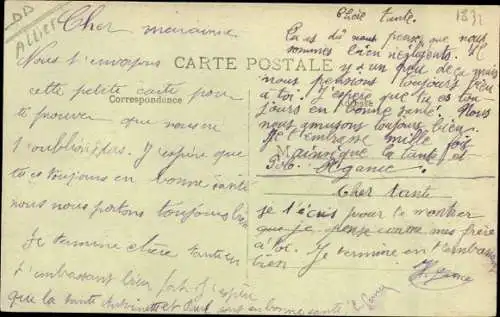 Allier
1832
Cher marraine
Nous t'envoyons
cette petite carte pour
te prouver que nous ne
t'oublions pas. J'espère que
tu es toujours en bonne santé
nous nous portons toujours bien
Je termine chère tante en
t'embrassant bien fort J'espère
que la tante Antoinette et Paul sont en bonne santé
CARTE POSTALE
Correspondance
Adresse
Chère tante.
Tu as dû nous penser que nous
sommes bien négligents. Il
y a un peu de ça mais
nous pensions toujours bien
à toi. J'espère que tu es tou-
jours en bonne santé. Nous
nous amusons toujours bien.
Je t'embrasse mille fois
Ainsi que la tante et
Cher tante
je t'écris pour te montrer
que je pense comme mes frère
à toi. Je termine en t'embrassant
bien